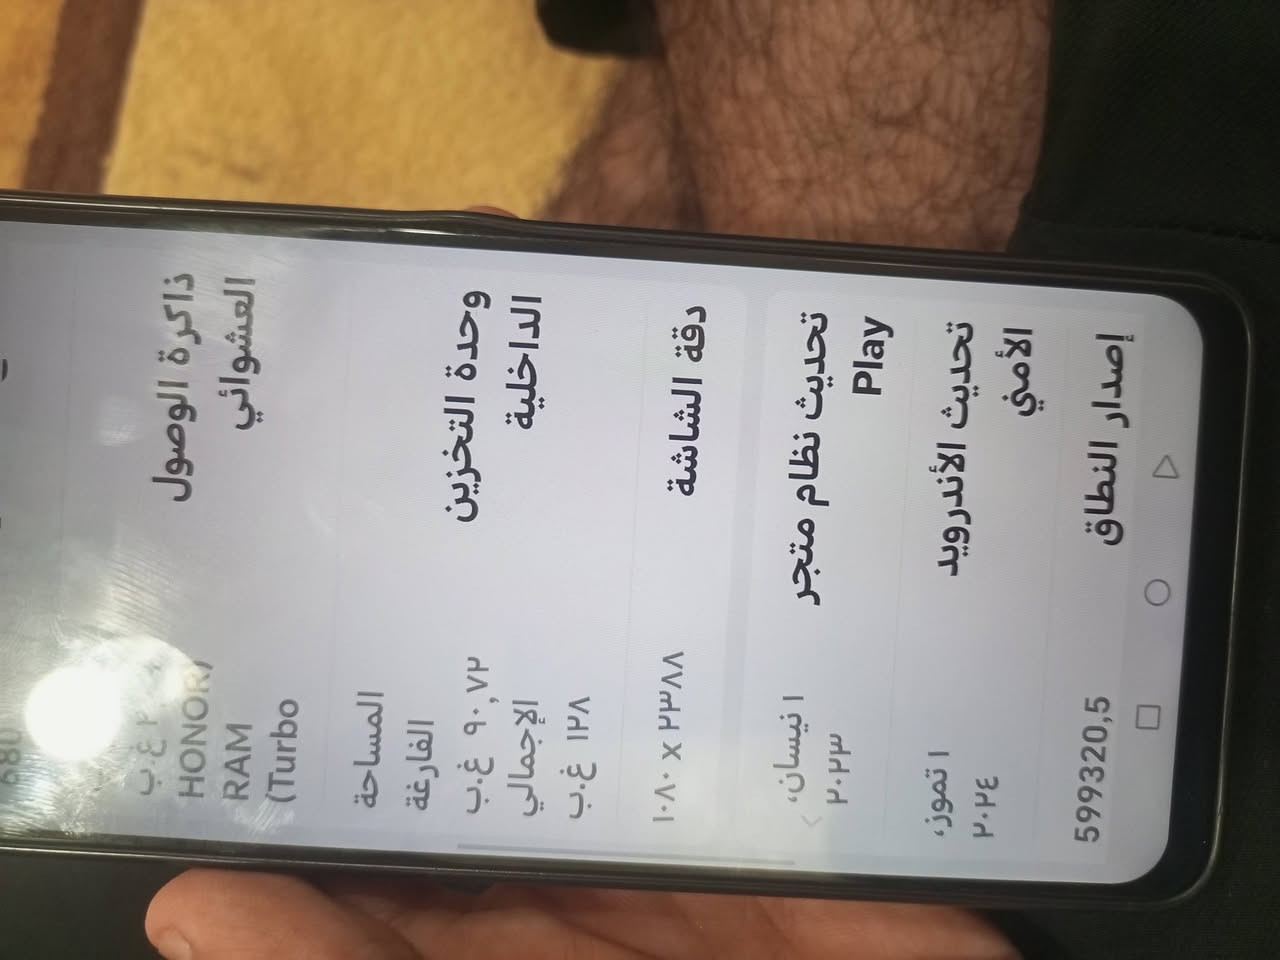 680
ذاكرة الوصول
العشوائي
غ.ب
HONOR)
RAM
(Turbo
وحدة التخزين
الداخلية
المساحة
الفارغة
٩٠,٧٢ غ.ب
الإجمالي
١٢٨ غ.ب
دقة الشاشة
١٠٨٠ x ٢٣٨٨
تحديث نظام متجر
Play
١ نيسان،
٢٠٢٣
تحديث الأندرويد
الأمني
١ تموز،
٢٠٢٤
إصدار النطاق
599320,5